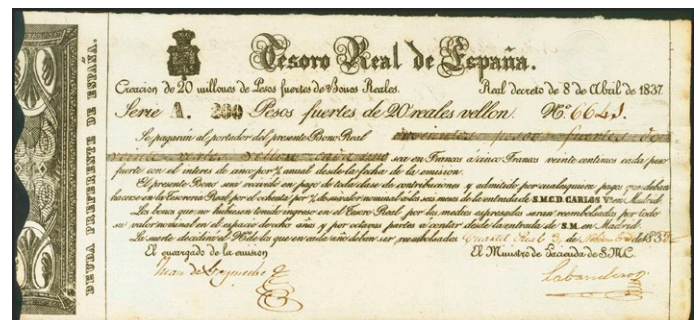 DEUDA PREFERENTE DE ESPAÑA.
Tesoro Real de España.
Creacion de 20 millones de Pesos fuertes de Bonos Reales. Real decreto de 8 de Abril de 1837
Serie A. 200 Pesos fuertes de 20 reales vellon. Nº 6641.
Se pagarán al portador del presente Bono Real doscientos pesos fuertes de
veinte reales vellon cada uno sea en Francos a cinco Francos veinte centimos cada peso
fuerte con el interes de cinco por % anual desde la fecha de la emision.
El presente Bono sera recivido en pago de toda clase de contribuciones y admitido por cualquier pago que deban
hacerse en la Tesoreria Real por el ochenta por % de su valor nominal a los seis meses de la entrada de S.M.C.D. CARLOS Vº en Madrid.
Los bonos que no hubiesen tenido ingreso en el Tesoro Real por los medios espresados seran reembolsados por todo
su valor nominal en el espacio de ocho años y por octavas partes a contar desde la entrada de S.M. en Madrid.
La suerte decidira el Nº de los que en cada año deben ser reembolsados Cuartel Real de 183
El encargado de la emision El Ministro de Hacienda de S.M.C.
Labandero